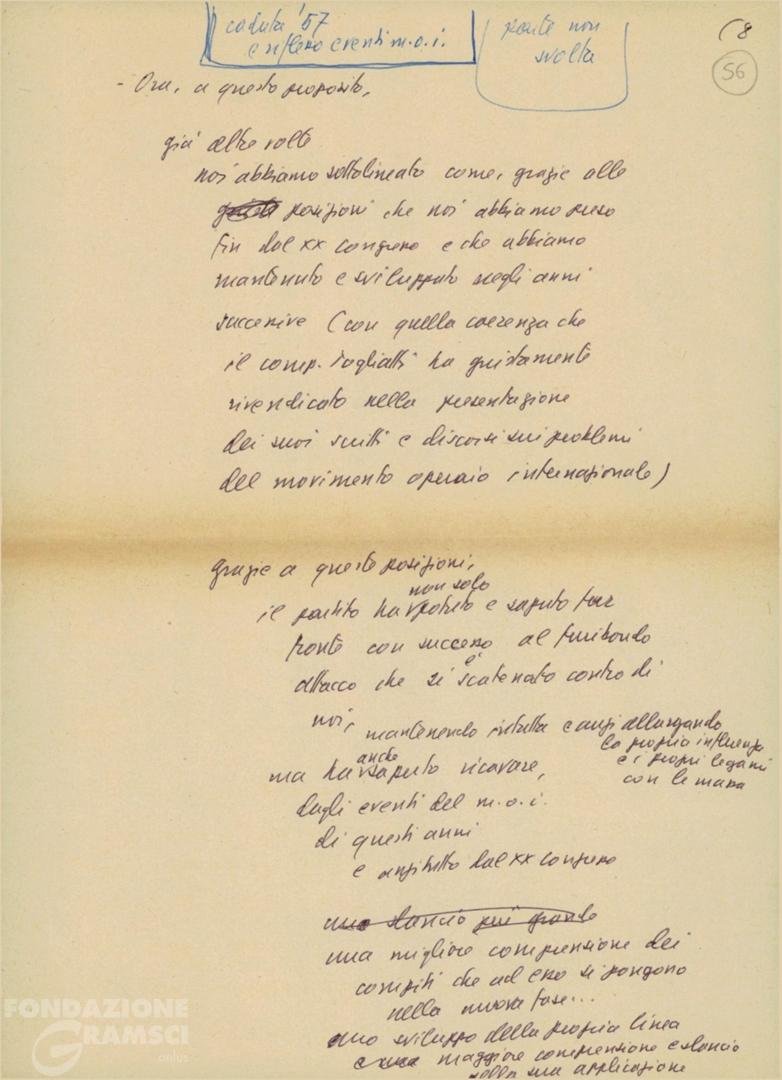 caduta '57
e riflesso eventi m.o.i.
parte non
svolta
(8
56
- Ora, a questo proposito,
già altre volte
noi abbiamo sottolineato come, grazie alle
posizioni che noi abbiamo preso
fin dal XX congresso e che abbiamo
mantenuto e sviluppato negli anni
successivi (con quella coerenza che
il comp. Togliatti ha giustamente
rivendicato nella presentazione
dei suoi scritti e discorsi sui problemi
del movimento operaio internazionale)
grazie a queste posizioni,
non solo
il partito ha potuto e saputo far
fronte con successo al furibondo
attacco che si è scatenato contro di
noi, mantenendo intatta e anzi allargando
la propria influenza
e i propri legami
con le masse
anche
ma ha saputo ricavare,
dagli eventi del m.o.i.
di questi anni
e anzitutto dal XX congresso
uno slancio più grande
una migliore comprensione dei
compiti che ad esso si pongono
nella nuova fase...
uno sviluppo della propria linea
e una maggiore comprensione e slancio
nella sua applicazione
FONDAZIONE
GRAMSCI
onlus